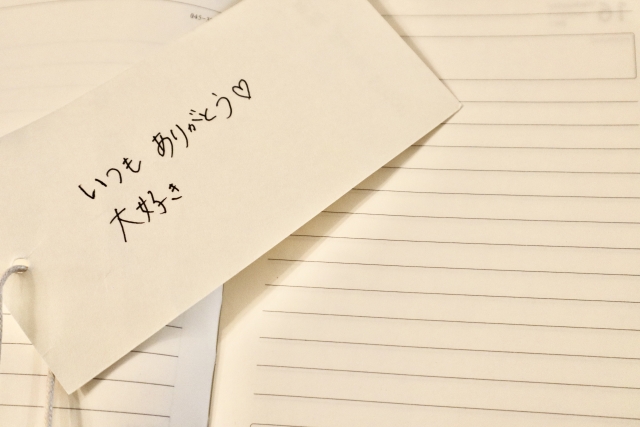 いつも ありがとう♡
大好き